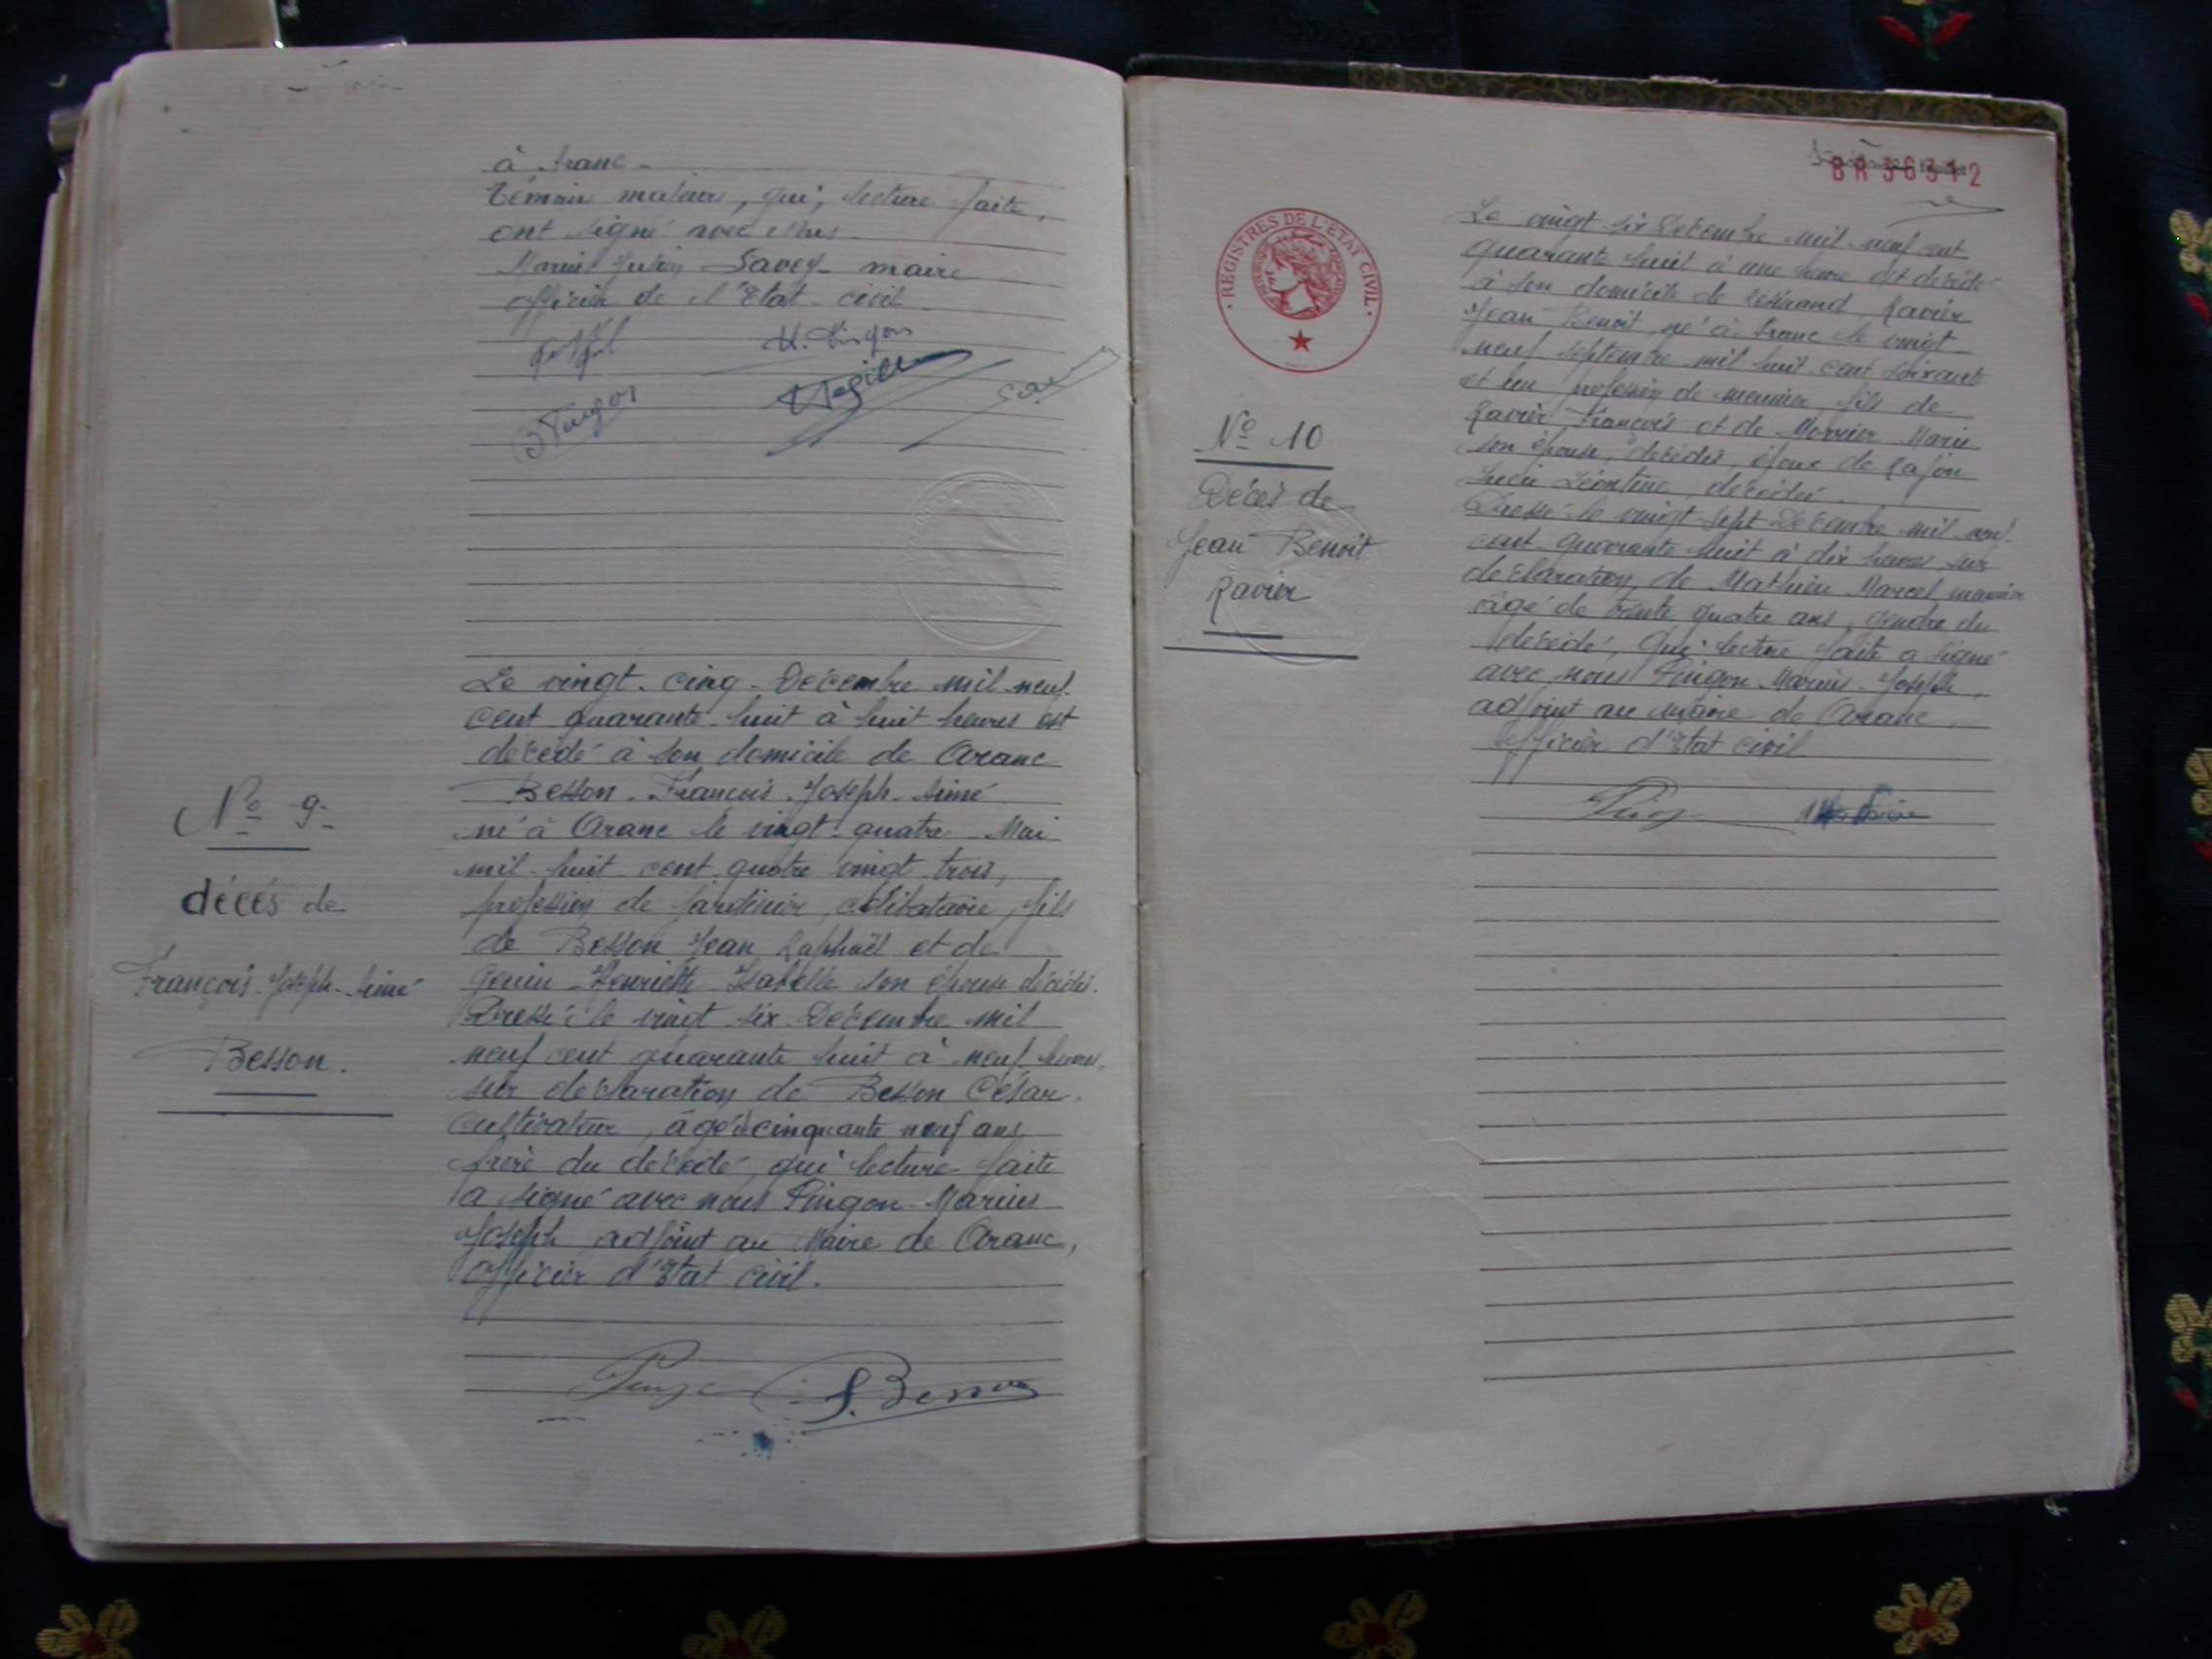 à Aranc -
témoin majeurs, qui, lecture faite,
ont signé avec Nous
Marius Julien Savey maire
officier de l'Etat-civil
Le vingt-cinq-Décembre mil neuf-
cent quarante-huit à huit heures est
décédé à son domicile de Aranc
Besson-François-Joseph-Aimé
né à Aranc le vingt-quatre Mai
mil-huit cent-quatre vingt trois,
profession de jardinier, célibataire, fils
de Besson Jean Raphaël et de
Genin-Henriette Isabelle son épouse décédés.
Dressé le vingt six Décembre mil
neuf cent quarante huit à neuf heures,
sur déclaration de Besson César,
cultivateur, âgé de cinquante neuf ans
frère du décédé, qui lecture faite
a signé avec nous Pingon Marius
Joseph adjoint au Maire de Aranc,
Officier d'Etat civil.
N° 9-
décès de
François-Joseph-Aimé
Besson.
S. Besson
BR 36312
REGISTRES DE L'ETAT CIVIL
N° 10
Décès de
Jean Benoit
Ravier
Le vingt six Décembre mil neuf cent
quarante huit à une heure est décédé
à son domicile de Résinand, Ravier
Jean Benoit, né à Aranc le vingt
neuf septembre mil huit cent soixante
et un profession de meunier fils de
Ravier François et de Mornier Marie
son épouse, décédés, époux de Rafin
Lucie Léontine, décédée.
Dressé le vingt sept Décembre mil neuf
cent quarante huit à dix heures sur
déclaration de Mathieu Marcel meunier
âgé de trente quatre ans, gendre du
décédé, qui lecture faite a signé
avec nous Pingon Marius-Joseph,
adjoint au maire de Aranc,
Officier d'Etat civil